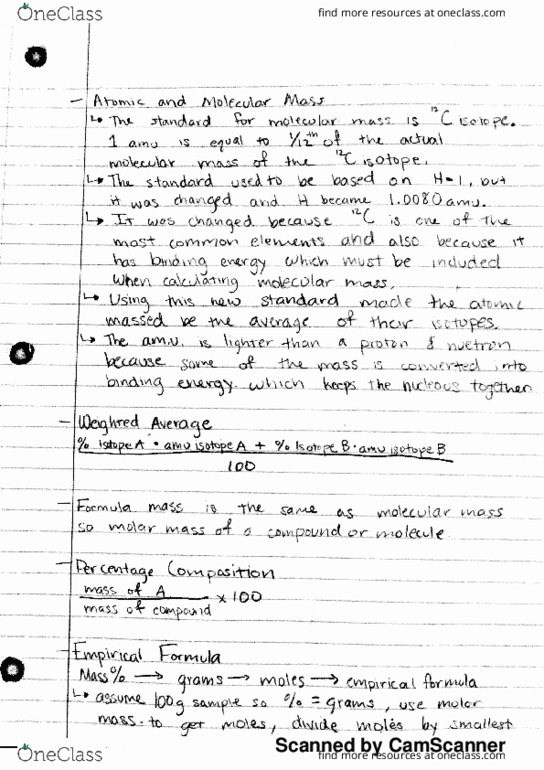 OneClass
find more resources at oneclass.com
- Atomic and Molecular Mass
↳ The standard for molecular mass is ¹²C isotope.
1 amu is equal to 1/12th of the actual
molecular mass of the ¹²C isotope.
↳ The standard used to be based on H=1, but
it was changed and H became 1.0080 amu.
↳ It was changed because ¹²C is one of the
most common elements and also because it
has binding energy which must be included
when calculating molecular mass.
↳ Using this new standard made the atomic
massed be the average of their isotopes.
↳ The amu. is lighter than a proton & nuetron
because some of the mass is converted into
binding energy which keeps the nucleous together
- Weighted Average
% Isotope A · amu isotope A + % Isotope B · amu isotope B
100
- Formula mass is the same as molecular mass
so molar mass of a compound or molecule.
- Percentage Composition
mass of A
x 100
mass of compound
- Empirical Formula
Mass % → grams → moles → empirical formula
↳ assume 100g sample so % = grams, use molar
mass to get moles, divide moles by smallest
Scanned by CamScanner
OneClass
find more resources at oneclass.com